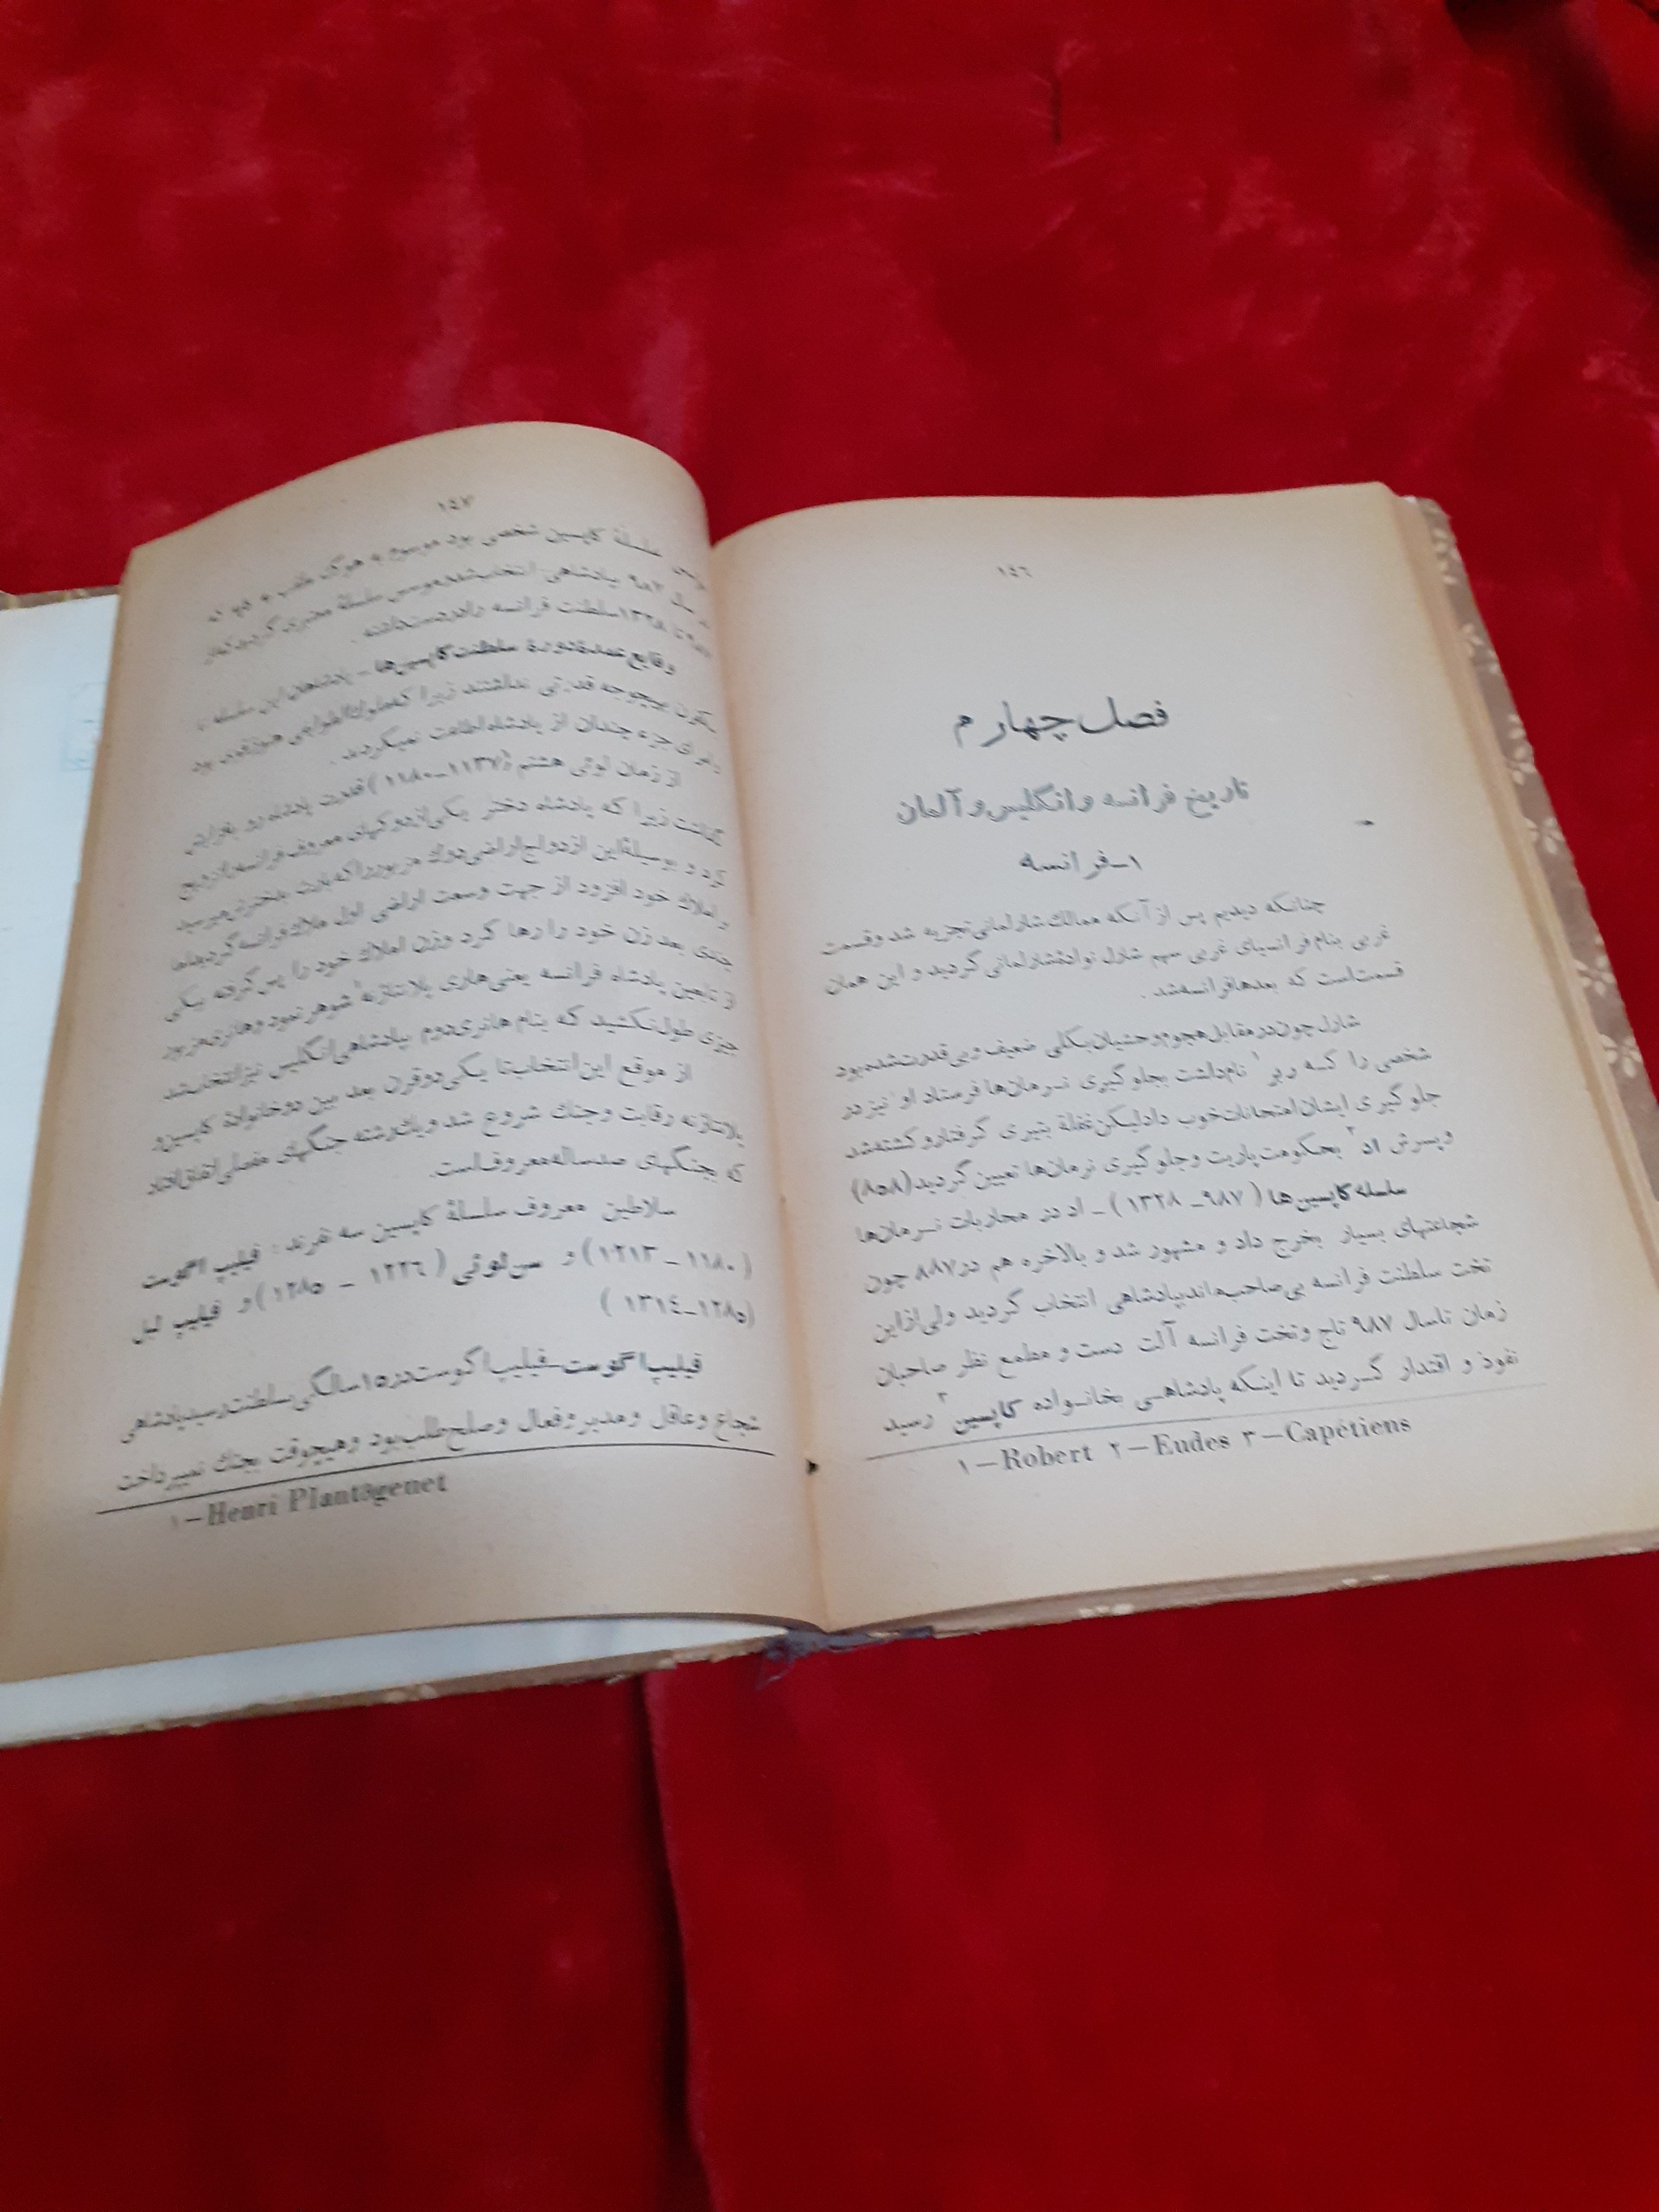 ١٤٦
فصل چهارم
تاریخ فرانسه و انگلیس و آلمان
١ـ فرانسه
چنانکه دیدیم پس از آنکه ممالك شارلمانی تجزیه شد و قسمت
غربی بنام فرانسیای غربی سهم شارل نوادهٔ شارلمانی گردید و این همان
قسمت است که بعدها فرانسه شد .
شارل چون در مقابل هجوم وحشیان بکلی ضعیف و بی قدرت شده بود
شخصی را کسه ربر ١ نام داشت بجلو گیری نـرمان‌ها فرستاد او نیز در
جلو گیری ایشان امتحانات خوب داد لیکن غفلة بتیری گرفتار و کشته شد
و پسرش اد ٢ بحکومت پاریت و جلو گیری نرمان‌ها تعیین گردید (٨٥٨)
سلسله کاپسین‌ها ( ٩٨٧ ـ ١٣٢٨ ) ـ اد در محاربات نـرمان‌ها
شجاعتهای بسیار بخرج داد و مشهور شد و بالاخره هم در ٨٨٧ چون
تخت سلطنت فرانسه بی صاحب ماند بپادشاهی انتخاب گردید ولی از این
زمان تا سال ٩٨٧ تاج و تخت فرانسه آلت دست و مطمع نظر صاحبان
نفوذ و اقتدار گـردید تا اینکه پادشاهـی بخانـواده کاپسین ٣ رسید
١ — Robert ٢ — Eudes ٣ — Capétiens
١٤٧
سلسلهٔ کاپسین شخصی بود موسوم به هوگ ملقب به کاپه که
سال ٩٨٧ بپادشاهی انتخاب شده موسس سلسلهٔ معتبری گردید که از
تا ١٣٢٨ سلطنت فرانسه را در دست داشته .
وقایع عمدهٔ دورهٔ سلطنت کاپسین‌ها ـ پادشاهان این سلسله تا
بهیچوجه قدرتی نداشتند زیرا که ملوك الطوایفی هنوز قوی بود
و امرای جزء چندان از پادشاه اطاعت نمیکردند .
از زمان لوئی هشتم (١١٣٧ـ١١٨٠) قدرت پادشاه رو بافزایش
گذاشت زیرا که پادشاه دختر یکی از دوکهای معروف فرانسه را تزویج
کرد و بوسیلهٔ این ازدواج اراضی دوك مزبور را که بارث بدخترش میرسید
بر املاك خود افزود از جهت وسعت اراضی اول ملاك فرانسه گردید اما
چندی بعد زن خود را رها کرد و زن املاك خود را پس گرفته بیکی
از تابعین پادشاه فرانسه یعنی هانری پلانتاژنه ١ شوهر نمود و هانری مزبور
چیزی طول نکشید که بنام هانری دوم بپادشاهی انگلیس نیز انتخاب شد
از موقع این انتخاب تا یکی دو قرن بعد بین دو خانوادهٔ کاپسین و
پلانتاژنه رقابت و جنك شروع شد و یك رشته جنگهای مفصلی اتفاق افتاد
که بجنگهای صد ساله معروف است.
سلاطین معروف سلسلهٔ کاپسین سه نفرند : فیلیپ اگوست
( ١١٨٠ ـ ١٢١٣) و سن لوئی ( ١٢٢٦ ـ ١٢٨٥ ) و فیلیپ لبل
(١٢٨٥ـ١٣١٤ )
فیلیپ اگوست ـ فیلیپ اگوست در ١٥ سالگی بسلطنت رسید پادشاهی
شجاع و عاقل و مدبر و فعال و صلح طلب بود و هیچوقت بجنك نمیپرداخت
١ — Henri Plantagenet